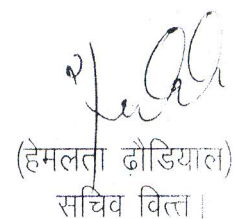 (हेमलता ढ़ौडियाल)
सचिव वित्त।